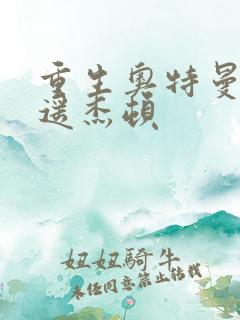 重生奥特曼
逼杰顿
妞妞骑牛
未经同意禁止转载